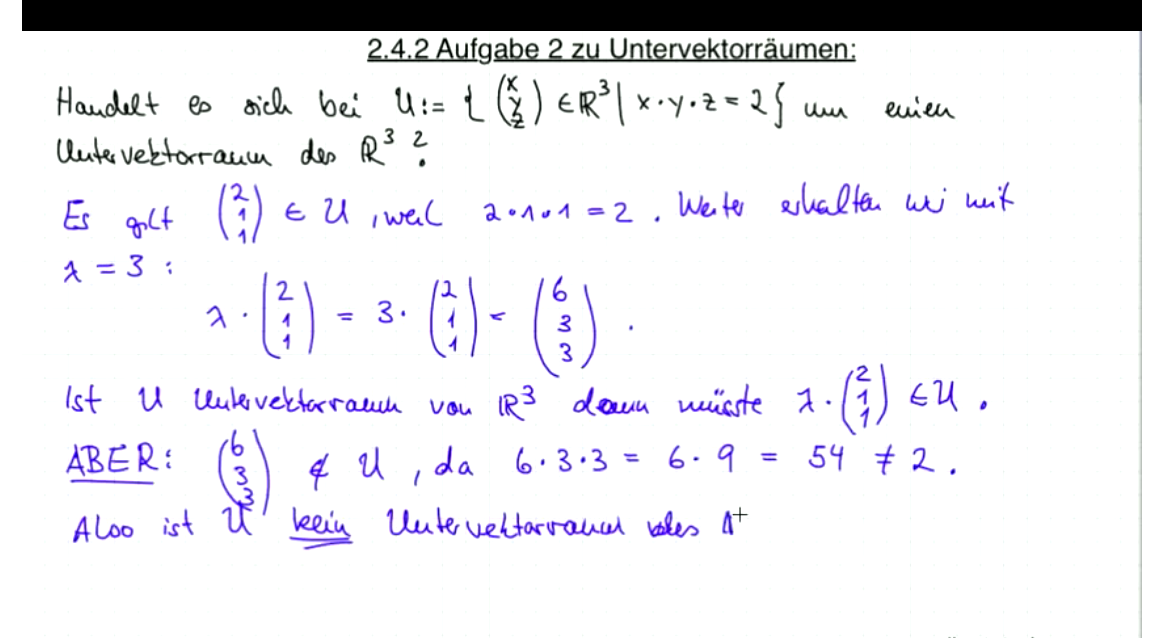 2.4.2 Aufgabe 2 zu Untervektorräumen:
Handelt es sich bei U := { (x y z) ∈ ℝ³ | x·y·z = 2 } um einen
Untervektorraum des ℝ³ ?
Es gilt (2 1 1) ∈ U, weil 2·1·1 = 2. Weiter erhalten wir mit
λ = 3 :
λ · (2 1 1) = 3 · (2 1 1) = (6 3 3) .
Ist U Untervektorraum von ℝ³ dann müsste λ · (2 1 1) ∈ U .
ABER: (6 3 3) ∉ U , da 6·3·3 = 6·9 = 54 ≠ 2 .
Also ist U kein Untervektorraum des